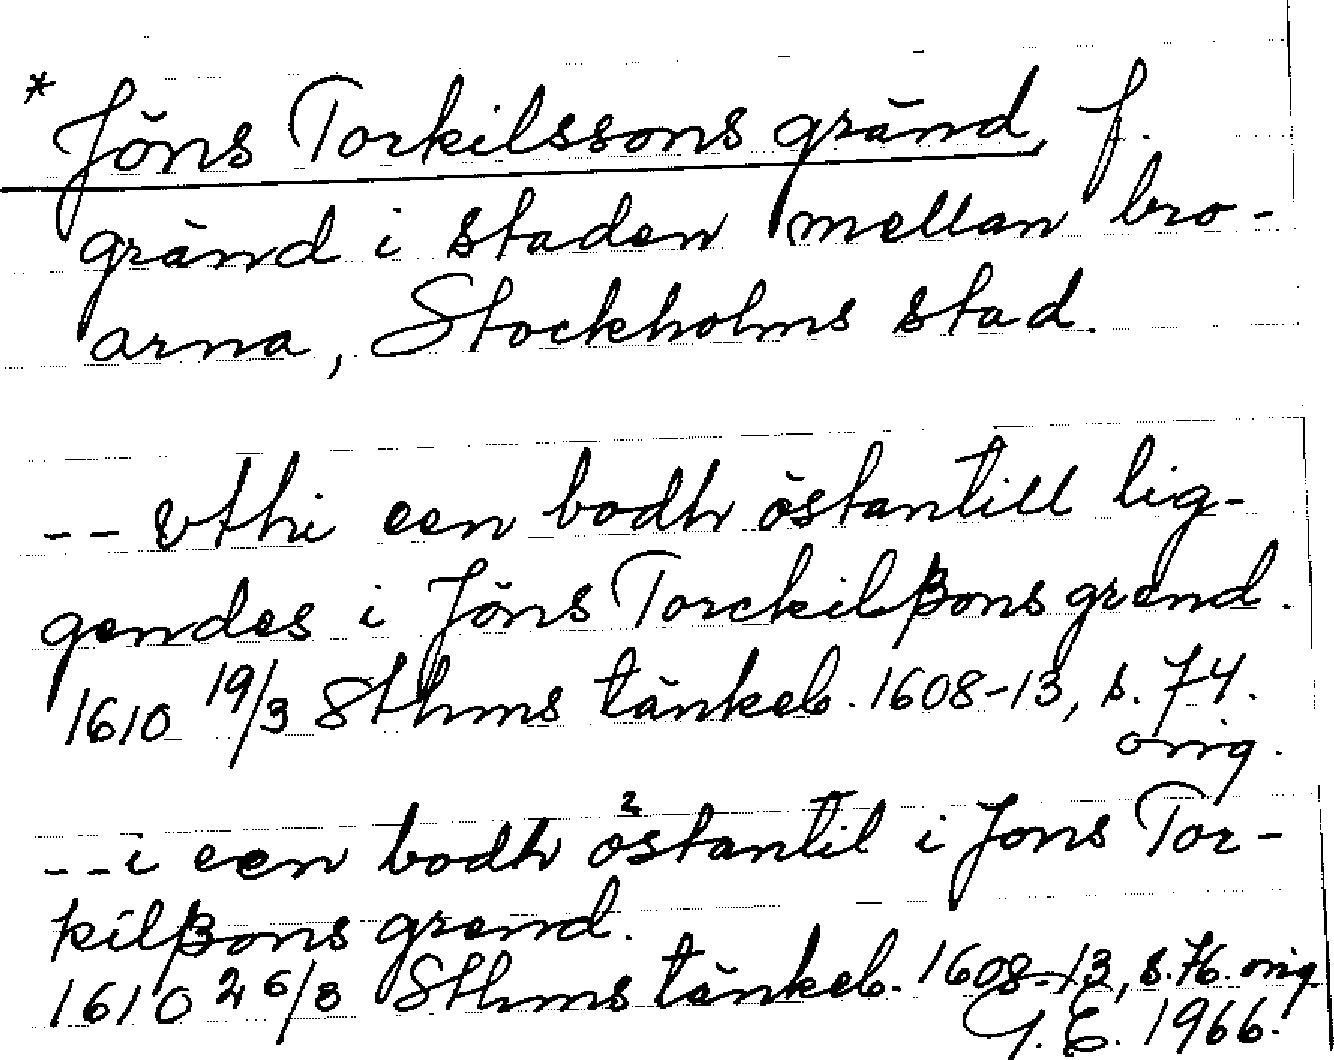 * Jöns Torkilssons gränd, f.
gränd i staden mellan bro-
arna, Stockholms stad.
-- vthi een bodh östantill lig-
gendes i Jöns Torckilßons grend.
1610 19/3 Sthms tänkeb. 1608-13, s. 74.
orig.
-- i een bodh östantil i Jons Tor-
kilßons grend.
1610 26/3 Sthms tänkeb. 1608-13, s. 76. orig
G. E. 1966.